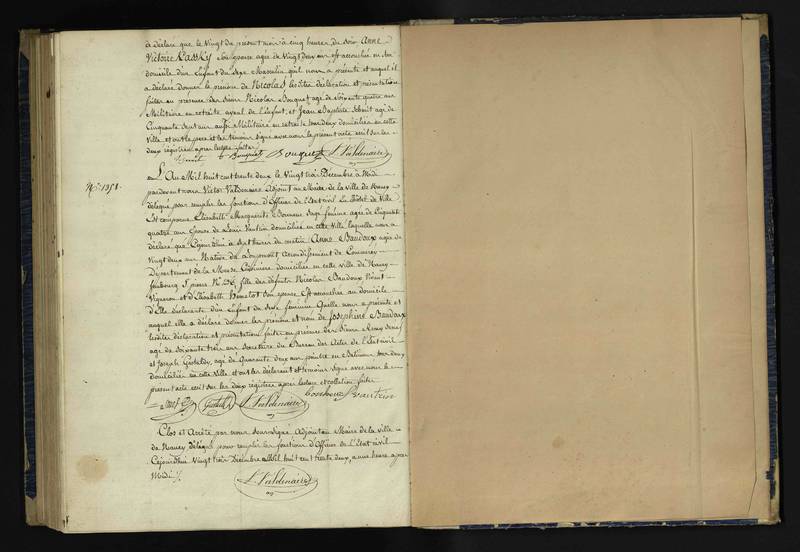 a déclaré que le vingt du présent mois à cinq heures du soir Anne
Victoire Lassky son épouse agée de vingt deux ans est accouchée en leur
domicile d'un Enfant du sexe Masculin qu'il nous a présenté et auquel il
a déclaré donner le prénom de Nicolas lesdites déclaration et présentation
faites en présence des sieurs Nicolas Bouquet agé de soixante quatre ans
Militaire en retraite ayeul de l'enfant, et Jean Baptiste agé de
Cinquante sept ans aussi Militaire en retraite tous deux domiciliés en cette
Ville et ont le père et les témoins signé avec nous le présent acte écrit sur les
deux registres après lecture faite
Bouquet Bouquet L. Valdenaire
N° 1351.
L'An Mil huit cent trente deux le vingt trois Décembre à Midi
pardevant nous Victor Valdenaire Adjoint au Maire de la Ville de Nancy
délégué pour remplir les fonctions d'Officier de l'Etat civil en l'hôtel de Ville
Est comparue Elisabeth Marguerite Bonheur sage femme agée de
quatre ans épouse de Vautrin domiciliée en cette Ville laquelle nous a
déclaré que Cejourd'hui à sept heures du matin Anne Baudoux agée de
vingt deux ans Native de arrondissement de Commercy
Département de la Meuse Cuisinière domiciliée en cette ville de Nancy
faubourg St pierre N° fille des défunts Nicolas Baudoux vivant
Vigneron et d'Elisabeth son épouse Est accouchée au domicile
d'Elle déclarante d'un Enfant du sexe féminin Quelle nous a présenté et
auquel elle a déclaré donner les prénom et nom de Josephine Baudoux
lesdites déclaration et présentation faites en présence des Sieurs Remy
agé de soixante trois ans secretaire du Bureau des Actes de l'Etat civil
et Joseph agé de Quarante deux ans peintre en Bâtimens tous deux
domiciliés en cette Ville et ont les déclarant et témoins signé avec nous le
présent acte écrit sur les deux registres après lecture et collation faites
bonheur vautrin
L. Valdenaire
Clos et Arrêté par nous soussigné Adjoint au Maire de la Ville
de Nancy délégué pour remplir les fonctions d'Officier de l'état civil
Cejourd'hui vingt trois Décembre Mil huit cent trente deux, a une heure après
Midi
L. Valdenaire